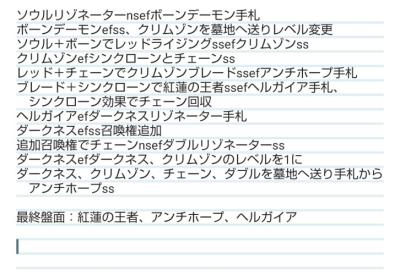 ソウルリゾネーターnsefボーンデーモン手札
ボーンデーモンefss、クリムゾンを墓地へ送りレベル変更
ソウル＋ボーンでレッドライジングssefクリムゾンss
クリムゾンefシンクローンとチェーンss
レッド＋チェーンでクリムゾンブレードssefアンチホープ手札
ブレード＋シンクローンで紅蓮の王者ssefヘルガイア手札、
シンクローン効果でチェーン回収
ヘルガイアefダークネスリゾネーター手札
ダークネスefss召喚権追加
追加召喚権でチェーンnsefダブルリゾネーターss
ダークネスefダークネス、クリムゾンのレベルを1に
ダークネス、クリムゾン、チェーン、ダブルを墓地へ送り手札から
アンチホープss
最終盤面：紅蓮の王者、アンチホープ、ヘルガイア